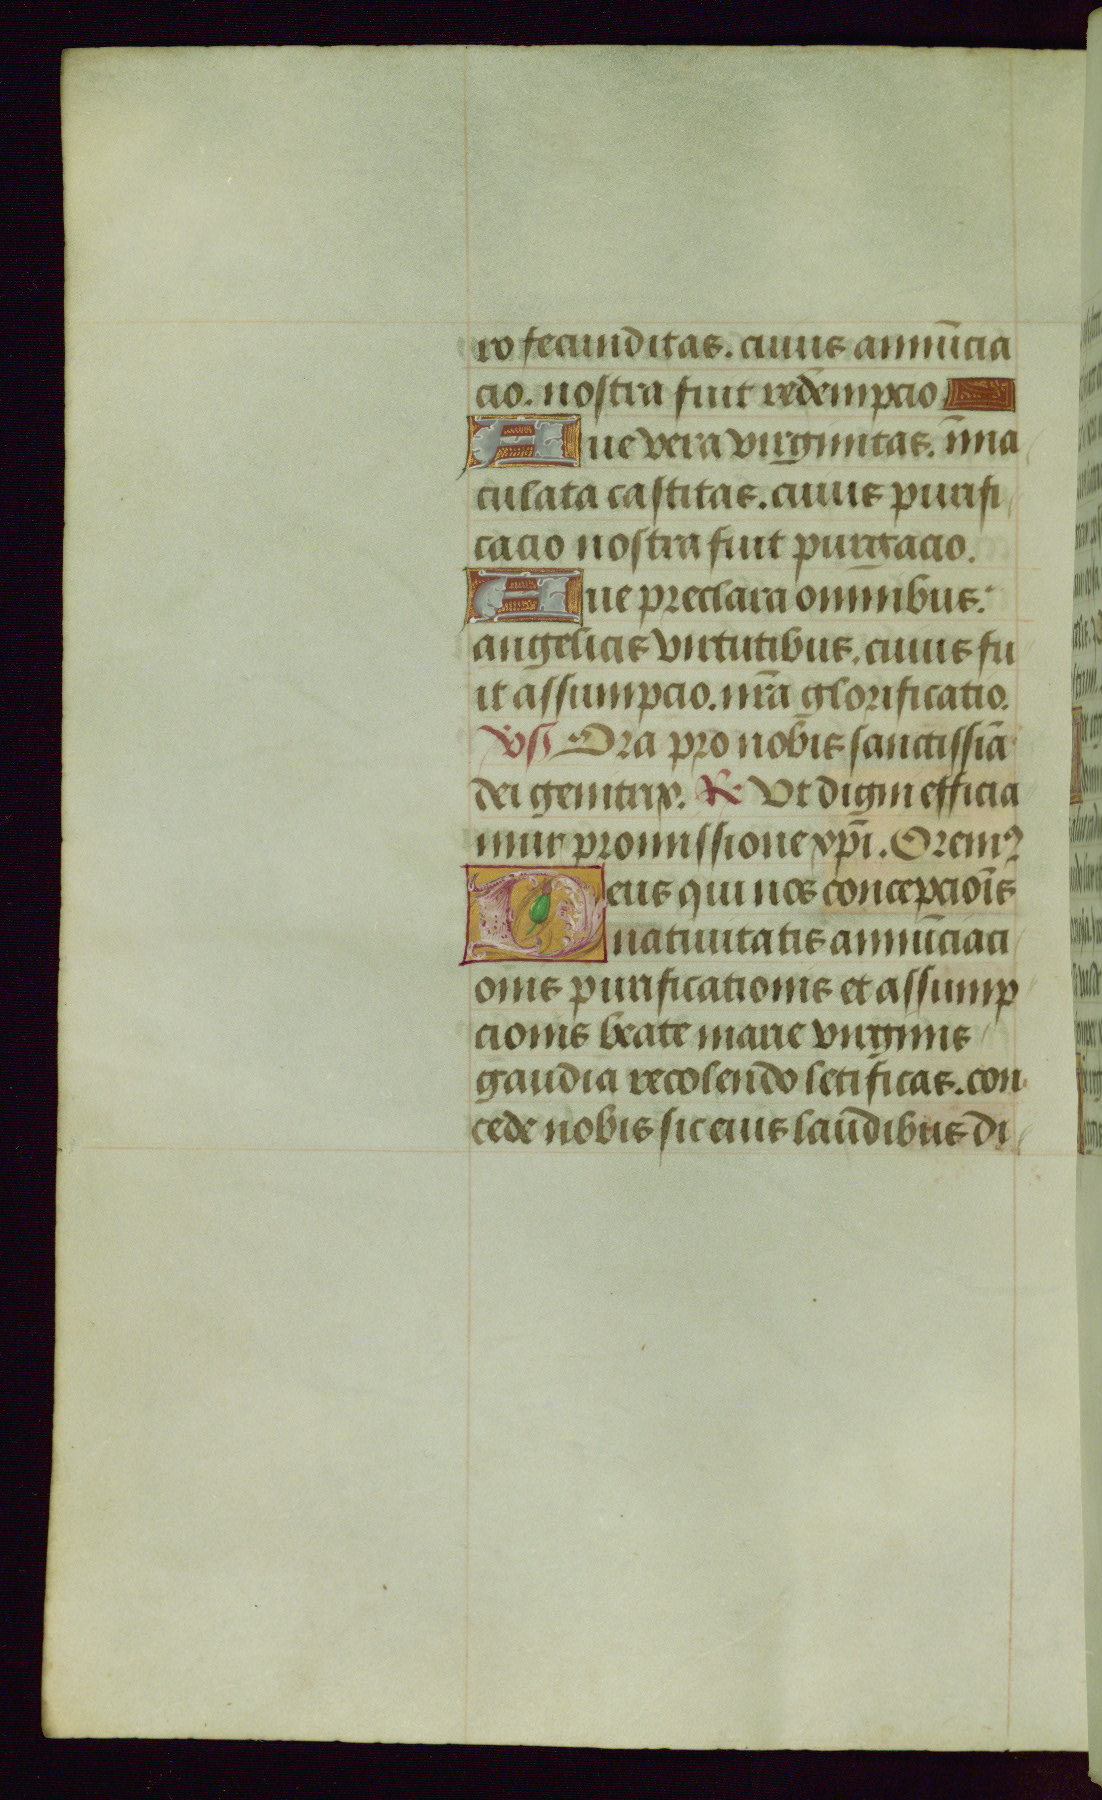 ro fecunditas. cuius annūcia
cio. nostra fuit redempcio
Aue vera virginitas. īma
culata castitas. cuius purifi
cacio nostra fuit purgacio.
Aue preclara omnibus.
angelicis virtutibus. cuius fu
it assumpcio. nr̄a glorificatio.
Vs̄ Ora pro nobis sanctissīa
dei genitrix. R̄ Vt digni efficia
mur promissione xp̄i. Oremꝰ
Deus qui nos concepcioīs
natiuitatis annūciaci
onis purificationis et assump
cionis beate marie virginis
gaudia recolendo letificas. con
cede nobis sic eius laudibus di